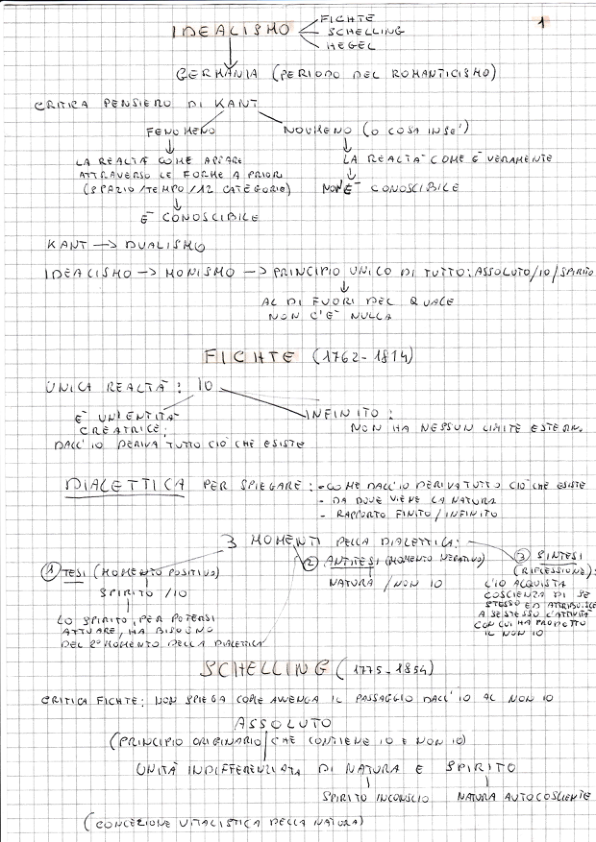 1
IDEALISMO
FICHTE
SCHELLING
HEGEL
GERMANIA (PERIODO DEL ROMANTICISMO)
CRITICA PENSIERO DI KANT
FENOMENO
NOUMENO (O COSA IN SE')
LA REALTÀ COME APPARE
ATTRAVERSO LE FORME A PRIORI
(SPAZIO/TEMPO/12 CATEGORIE)
È CONOSCIBILE
LA REALTA' COME E' VERAMENTE
NON È CONOSCIBILE
KANT → DUALISMO
IDEALISMO → MONISMO → PRINCIPIO UNICO DI TUTTO: ASSOLUTO/IO/SPIRITO
AL DI FUORI DEL QUALE
NON C'E' NULLA
FICHTE (1762-1814)
UNICA REALTÀ: IO
È UN'ENTITÀ
CREATRICE:
DALL'IO DERIVA TUTTO CIÒ CHE ESISTE
INFINITO:
NON HA NESSUN LIMITE ESTERN.
DIALETTICA PER SPIEGARE: - COME DALL'IO DERIVA TUTTO CIÒ CHE ESISTE
- DA DOVE VIENE LA NATURA
- RAPPORTO FINITO/INFINITO
3 MOMENTI DELLA DIALETTICA:
1 TESI (MOMENTO POSITIVO)
SPIRITO/IO
LO SPIRITO, PER POTERSI
ATTUARE, HA BISOGNO
DEL 2° MOMENTO DELLA DIALETTICA
2 ANTITESI (MOMENTO NEGATIVO)
NATURA/NON IO
3 SINTESI
(RIFLESSIONE):
L'IO ACQUISTA
COSCIENZA DI SE
STESSO ED ATTRIBUISCE
A SE STESSO L'ATTIVITÀ
CON CUI HA PRODOTTO
IL NON IO
SCHELLING (1775-1854)
CRITICA FICHTE: NON SPIEGA COME AVVENGA IL PASSAGGIO DALL'IO AL NON IO
ASSOLUTO
(PRINCIPIO ORIGINARIO CHE CONTIENE IO E NON IO)
UNITÀ INDIFFERENZIATA DI NATURA E SPIRITO
SPIRITO INCONSCIO
NATURA AUTOCOSCIENTE
(CONCEZIONE VITALISTICA DELLA NATURA)